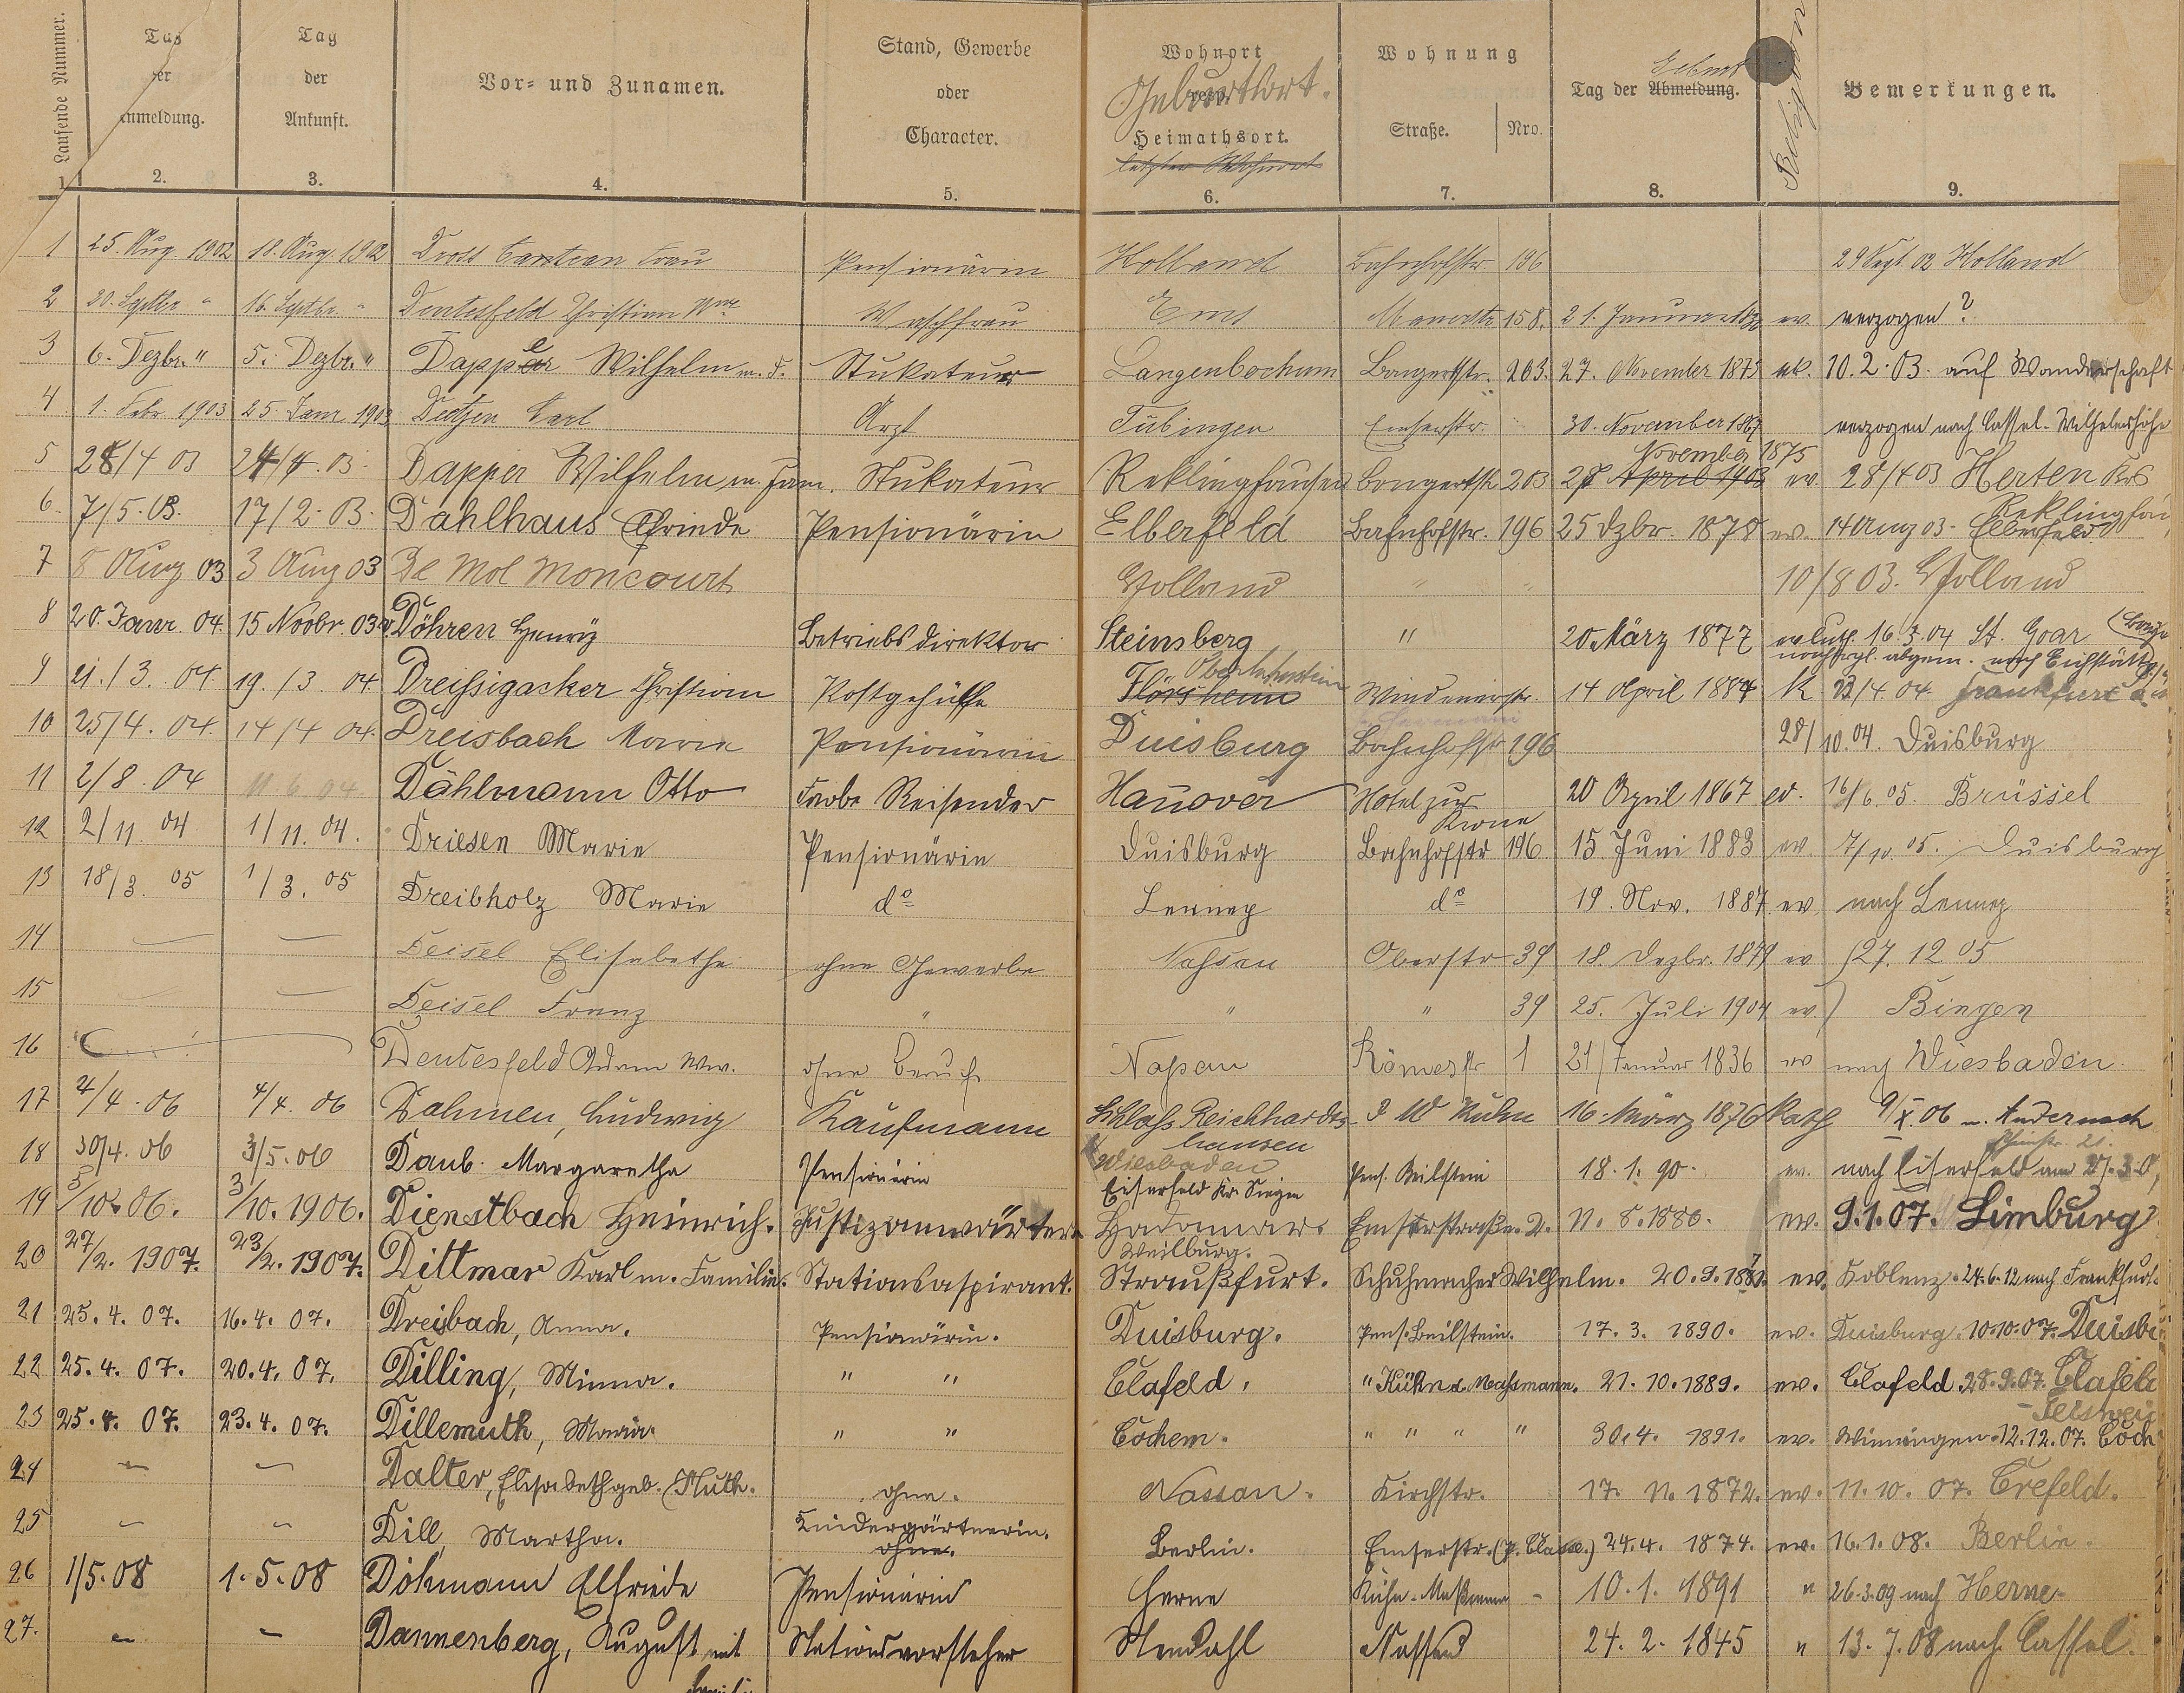 Laufende Nummer. Tag der Anmeldung. Tag der Ankunft. Vor- und Zunamen. Stand, Gewerbe oder Character. Wohnort resp. Heimathsort. Geburtsort. letzter Wohnort Wohnung Straße. Nro. Tag der Abmeldung. Geburt Religion Bemerkungen.
1 2. 3. 4. 5. 6. 7. 8. 9.
1 25. Aug. 1902 18. Aug. 1902 Frau Pensionärin Holland Bahnhofstr. 196 29 Sept. 02 Holland
2 20. Septbr. " 16. Septbr. " Dentesfeld Christian Wwe Waschfrau Ems 158. 21. Januar ev. verzogen?
3 6. Dezbr. " 5. Dezbr. " Dapper Wilhelm m. F. Stukateur Langenbochum Bongertstr. 203. 27. November 1875 ev. 10.2.03. auf Wanderschaft
4 1. Febr 1903 25. Janr 1903 Carl Arzt Tübingen Emserstr. 30. November 1867 verzogen nach Cassel-Wilhelmshöhe
5 28/4 03 24/4. 03. Dapper Wilhelm m. Fam. Stukateur Reklinghausen Bongertstr. 203 27 April 1903 November 1875 ev 28/4 03 Herten Krs Reklinghau
6. 7/5. 03. 17/2. 03. Dahlhaus Pensionärin Elberfeld Bahnhofstr. 196 25 Dzbr. 1878 ev. 14 Aug 03. Elberfeld
7 8 Aug 03 3 Aug 03 De Mol Moncourt Holland " " 10/8 03. Holland
8 20. Janr. 04. 15 Novbr. 03 v. Döhren Henry Betriebsdirektor Steinsberg " 20. März 1877 ev. luth. 16.3.04 St. Goar
9 21./3. 04. 19./3 04. Dreissigacker Christian Postgehülfe Flörsheim Oberlahnstein 14 April 1884 K 22/4. 04 Frankfurt a. nach Eichstätt
10 25/4. 04. 14/4 04. Dreisbach Maria Pensionärin Duisburg Bahnhofstr 196 28/10. 04. Duisburg
11 2/8. 04 11 6 04 Dählmann Otto Farbe Reisender Hanover Hotel zur Krone 20 April 1867 ev. 16/6. 05. Brüssel
12 2/11. 04 1/11. 04. Driesen Marie Pensionärin Duisburg Bahnhofstr 196 15. Juni 1883 ev. 7/10. 05. Duisburg
13 18/3. 05 1/3. 05 Dreibholz Marie do Lennep do 19. Nov. 1887 ev nach Lennep
14 — — Deisel Elisabethe ohne Gewerbe Nassau Oberstr 39 18. Dezbr. 1879 ev 27. 12 05
15 — — Deisel Franz " " " 39 25. Juli 1904 ev. Bingen
16 Dentesfeld Adam Ww. ohne Beruf Nassau Römerstr 1 21/Januar 1836 ev nach Wiesbaden.
17 4/4. 06 4/4. 06 Dahmen, Ludwig Kaufmann Schloss Reichhardtshausen J W Kuhn 16. März 1876 Kath 9/X. 06 n. Andernach
18 30/4. 06 3/5. 06 Daub. Margaretha Pensionärin Wiesbaden Eiserfeld Kr. Siegen Pens. Beilstein 18. 1. 90. ev. nach Eiserfeld am 27. 3. 0
19 5/10. 06. 3/10. 1906. Dienstbach Heinrich. Justizanwärter Hadamar. Weilburg. Emserstraße 2. 11. 8. 1886. ev. 9.1.07. Limburg
20 27/2. 1907. 23/2. 1907. Dittmar Karl m. Familie. Stationsaspirant. Straußfurt. Schuhmacher Wilhelm. 20. 9. ev. Koblenz. 24.6.12 nach Frankfurt.
21 25. 4. 07. 16. 4. 07. Dreisbach, Anna. Pensionärin. Duisburg. Pens. Beilstein. 17. 3. 1890. ev. Duisburg. 10.10.07. Duisb
22 25. 4. 07. 20. 4. 07. Dilling, Minna. " " Clafeld. " Kühne-Massmann. 21. 10. 1889. ev. Clafeld. 28.9.07. Clafeld
23 25. 4. 07. 23. 4. 07. Dillemuth, Maria. " " Cochem. " " " " 30. 4. 1891. ev. Winningen. 12.12.07. Coch
24 — — Dalter, Elisabeth geb. Huth. ohne. Nassau. Kirchstr. 17. 11. 1872. ev. 11. 10. 07. Crefeld.
25 — — Dill, Martha. Kindergärtnerin. ohne. Berlin. Emserstr. 24. 4. 1874. ev. 16. 1. 08. Berlin.
26 1/5. 08 1. 5. 08 Döhmann Elfriede Pensionärin Herne Kühn-Maßmann - 10. 1. 1891 " 26.3.09 nach Herne
27. — — Dannenberg, August mit Familie Stationsvorsteher Stendahl Nassau 24. 2. 1845 " 13. 7. 08 nach Cassel.